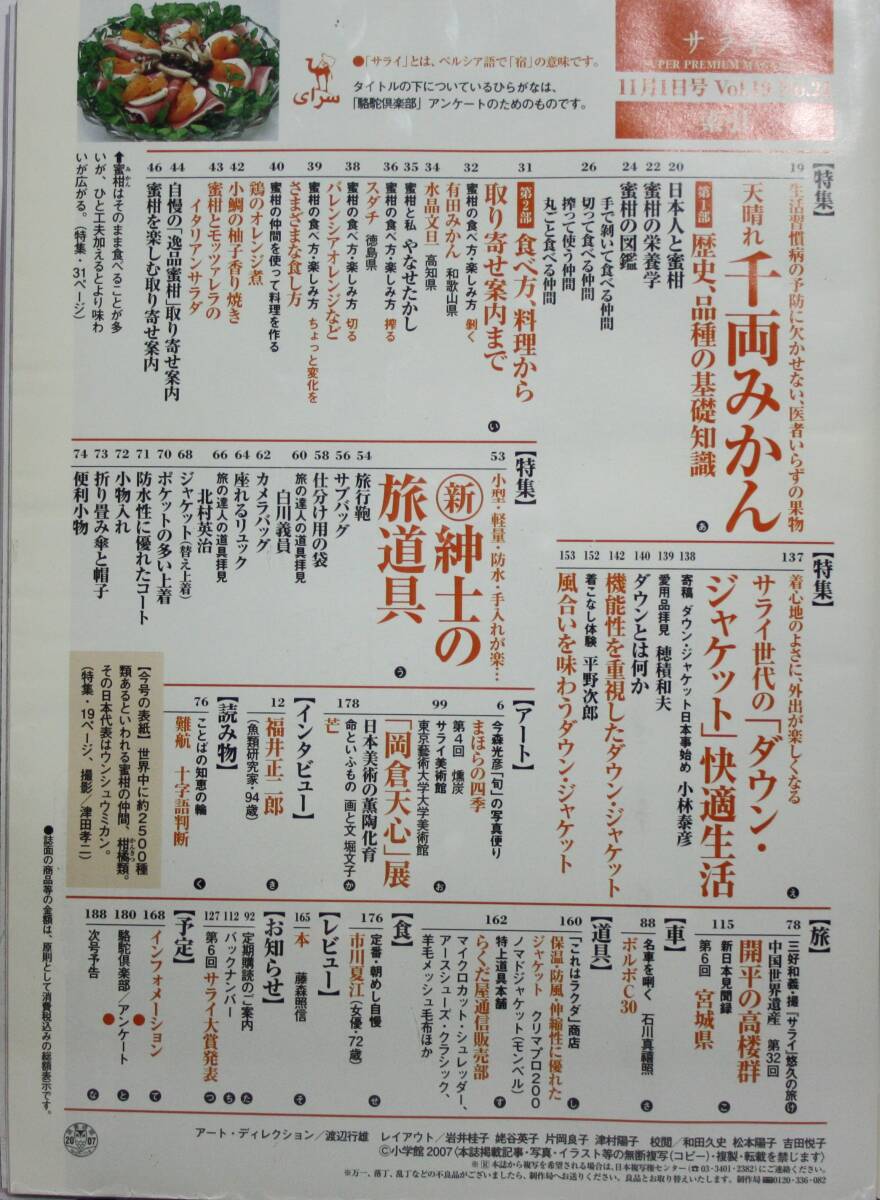 サライ
SUPER PREMIUM MAGA
11月1日号 Vol.19
●「サライ」とは、ペルシア語で「宿」の意味です。
タイトルの下についているひらがなは、
「駱駝倶楽部」アンケートのためのものです。
سرای
【特集】
19 生活習慣病の予防に欠かせない、医者いらずの果物
天晴れ 千両みかん
第1部 歴史、品種の基礎知識 あ
20 日本人と蜜柑
22 蜜柑の栄養学
24 蜜柑の図鑑
26 手で剝いて食べる仲間
切って食べる仲間
搾って使う仲間
丸ごと食べる仲間
31 第2部 食べ方、料理から
取り寄せ案内まで い
32 蜜柑の食べ方・楽しみ方 剝く
有田みかん 和歌山県
34 水晶文旦 高知県
35 蜜柑と私 やなせたかし
36 蜜柑の食べ方・楽しみ方 搾る
スダチ 徳島県
38 蜜柑の食べ方・楽しみ方 切る
バレンシアオレンジなど
39 蜜柑の食べ方・楽しみ方 ちょっと変化を
さまざまな食し方
40 蜜柑の仲間を使って料理を作る
鶏のオレンジ煮
42 小鯛の柚子香り焼き
43 蜜柑とモッツァレラの
イタリアンサラダ
44 自慢の「逸品蜜柑」取り寄せ案内
46 蜜柑を楽しむ取り寄せ案内
⬆蜜柑はそのまま食べることが多
いが、ひと工夫加えるとより味わ
いが広がる。(特集・31ページ)
【特集】
53 小型・軽量・防水・手入れが楽…
新 紳士の
旅道具 う
54 旅行鞄
56 サブバッグ
58 仕分け用の袋
60 旅の達人の道具拝見
白川義員
62 カメラバッグ
64 座れるリュック
66 旅の達人の道具拝見
北村英治
68 ジャケット(替え上着)
70 ポケットの多い上着
71 防水性に優れたコート
72 小物入れ
73 折り畳み傘と帽子
74 便利小物
【特集】
137 着心地のよさに、外出が楽しくなる
サライ世代の「ダウン・
ジャケット」快適生活 え
138 寄稿 ダウン・ジャケット日本事始め 小林泰彦
139 愛用品拝見 穂積和夫
140 ダウンとは何か
142 機能性を重視したダウン・ジャケット
152 着こなし体験 平野次郎
153 風合いを味わうダウン・ジャケット
【アート】
6 今森光彦「旬」の写真便り
まほらの四季
第4回 燻炭 お
99 サライ美術館
東京藝術大学大学美術館
「岡倉天心」展
日本美術の薫陶化育
178 命といふもの 画と文 堀文子 か
芒
【インタビュー】
12 福井正二郎
(魚類研究家・94歳) き
【読み物】
76 ことばの知恵の輪
難航 十字語判断 く
【今号の表紙】世界中に約2500種
類あるといわれる蜜柑の仲間、柑橘類。
その日本代表はウンシュウミカン。
(特集・19ページ、撮影/津田孝二)
【旅】
78 三好和義・撮「サライ」悠久の旅 け
中国世界遺産 第32回
開平の高楼群
115 新日本見聞録
第6回 宮城県 こ
【車】
88 名車を嘶く 石川真禧照
ボルボC30 さ
【道具】
160 「これはラクダ」商店
保温・防風・伸縮性に優れた
ジャケット クリマプロ200
ノマドジャケット(モンベル) し
162 特上道具本舗
らくだ屋通信販売部
マイクロカット・シュレッダー、
アースシューズ・クラシック、
羊毛メッシュ毛布ほか す
【食】
176 定番・朝めし自慢
市川夏江(女優・72歳) せ
【レビュー】
165 本 藤森照信 そ
【お知らせ】
92 定期購読のご案内 た
112 バックナンバー ち
127 第6回 サライ大賞発表 つ
【予定】
168 インフォメーション て
180 駱駝倶楽部/アンケート と
188 次号予告 な
●誌面の商品等の金額は、原則として消費税込みの総額表示です。
2007
アート・ディレクション/渡辺行雄 レイアウト/岩井桂子 姥谷英子 片岡良子 津村陽子 校閲/和田久史 松本陽子 吉田悦子
©小学館2007〈本誌掲載記事・写真・イラスト等の無断複写(コピー)・複製・転載を禁じます〉
※Ⓡ本誌から複写を希望される場合は、日本複写権センター(☎03-3401-2382)にご連絡ください。
※万一、落丁、乱丁などの不良品がございましたら、制作局へお送りください。良品とお取り替えいたします。制作局0120-336-082